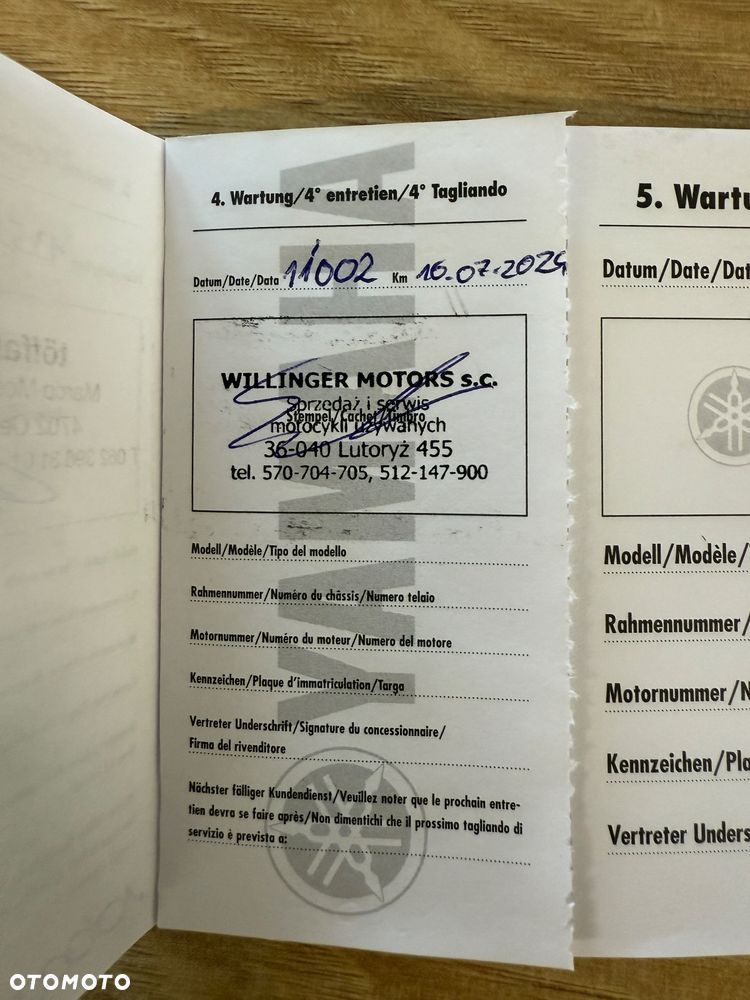 YAMAHA
4. Wartung/4° entretien/4° Tagliando
Datum/Date/Data 11002 Km 16.07.2024
WILLINGER MOTORS s.c.
Sprzedaż i serwis
Stempel/Cachet/Timbro
motocykli używanych
36-040 Lutoryż 455
tel. 570-704-705, 512-147-900
Modell/Modèle/Tipo del modello
Rahmennummer/Numéro du châssis/Numero telaio
Motornummer/Numéro du moteur/Numero del motore
Kennzeichen/Plaque d'immatriculation/Targa
Vertreter Underschrift/Signature du concessionnaire/
Firma del rivenditore
Nächster fälliger Kundendienst/Veuillez noter que le prochain entre-
tien devra se faire après/Non dimentichi che il prossimo tagliando di
servizio è prevista a:
5. Wartu
Datum/Date/Dat
Modell/Modèle/
Rahmennummer/
Motornummer/N
Kennzeichen/Pla
Vertreter Unders
OTOMOTO